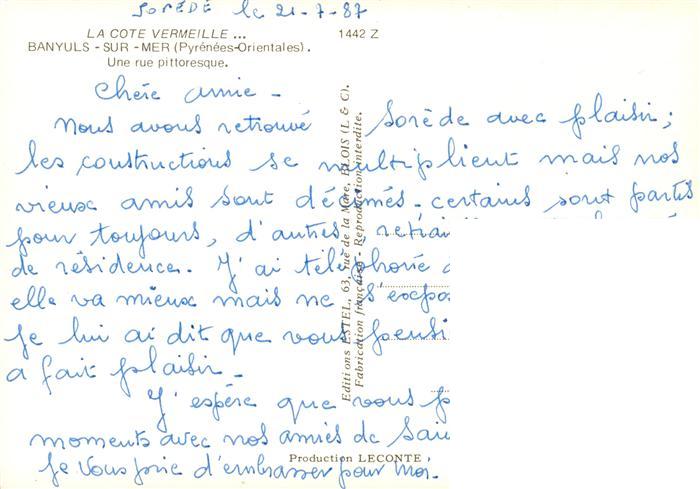 SORÈDE le 21-7-87
LA COTE VERMEILLE ...
BANYULS - SUR - MER (Pyrénées-Orientales).
Une rue pittoresque.
1442 Z
Chère amie -
Nous avons retrouvé Sorède avec plaisir ;
les constructions se multiplient mais nos
vieux amis sont décimés - certains sont partis
pour toujours, d'autres
de résidence. J'ai téléphoné
elle va mieux mais ne s'expo
Je lui ai dit que vous pensi
a fait plaisir -
J'espère que vous p
moments avec nos amies de
Je vous prie d'embrasser pour moi.
Editions ESTEL, 63, rue de la Mare, BLOIS (L & C).
Fabrication française - Reproduction interdite.
Production LECONTE